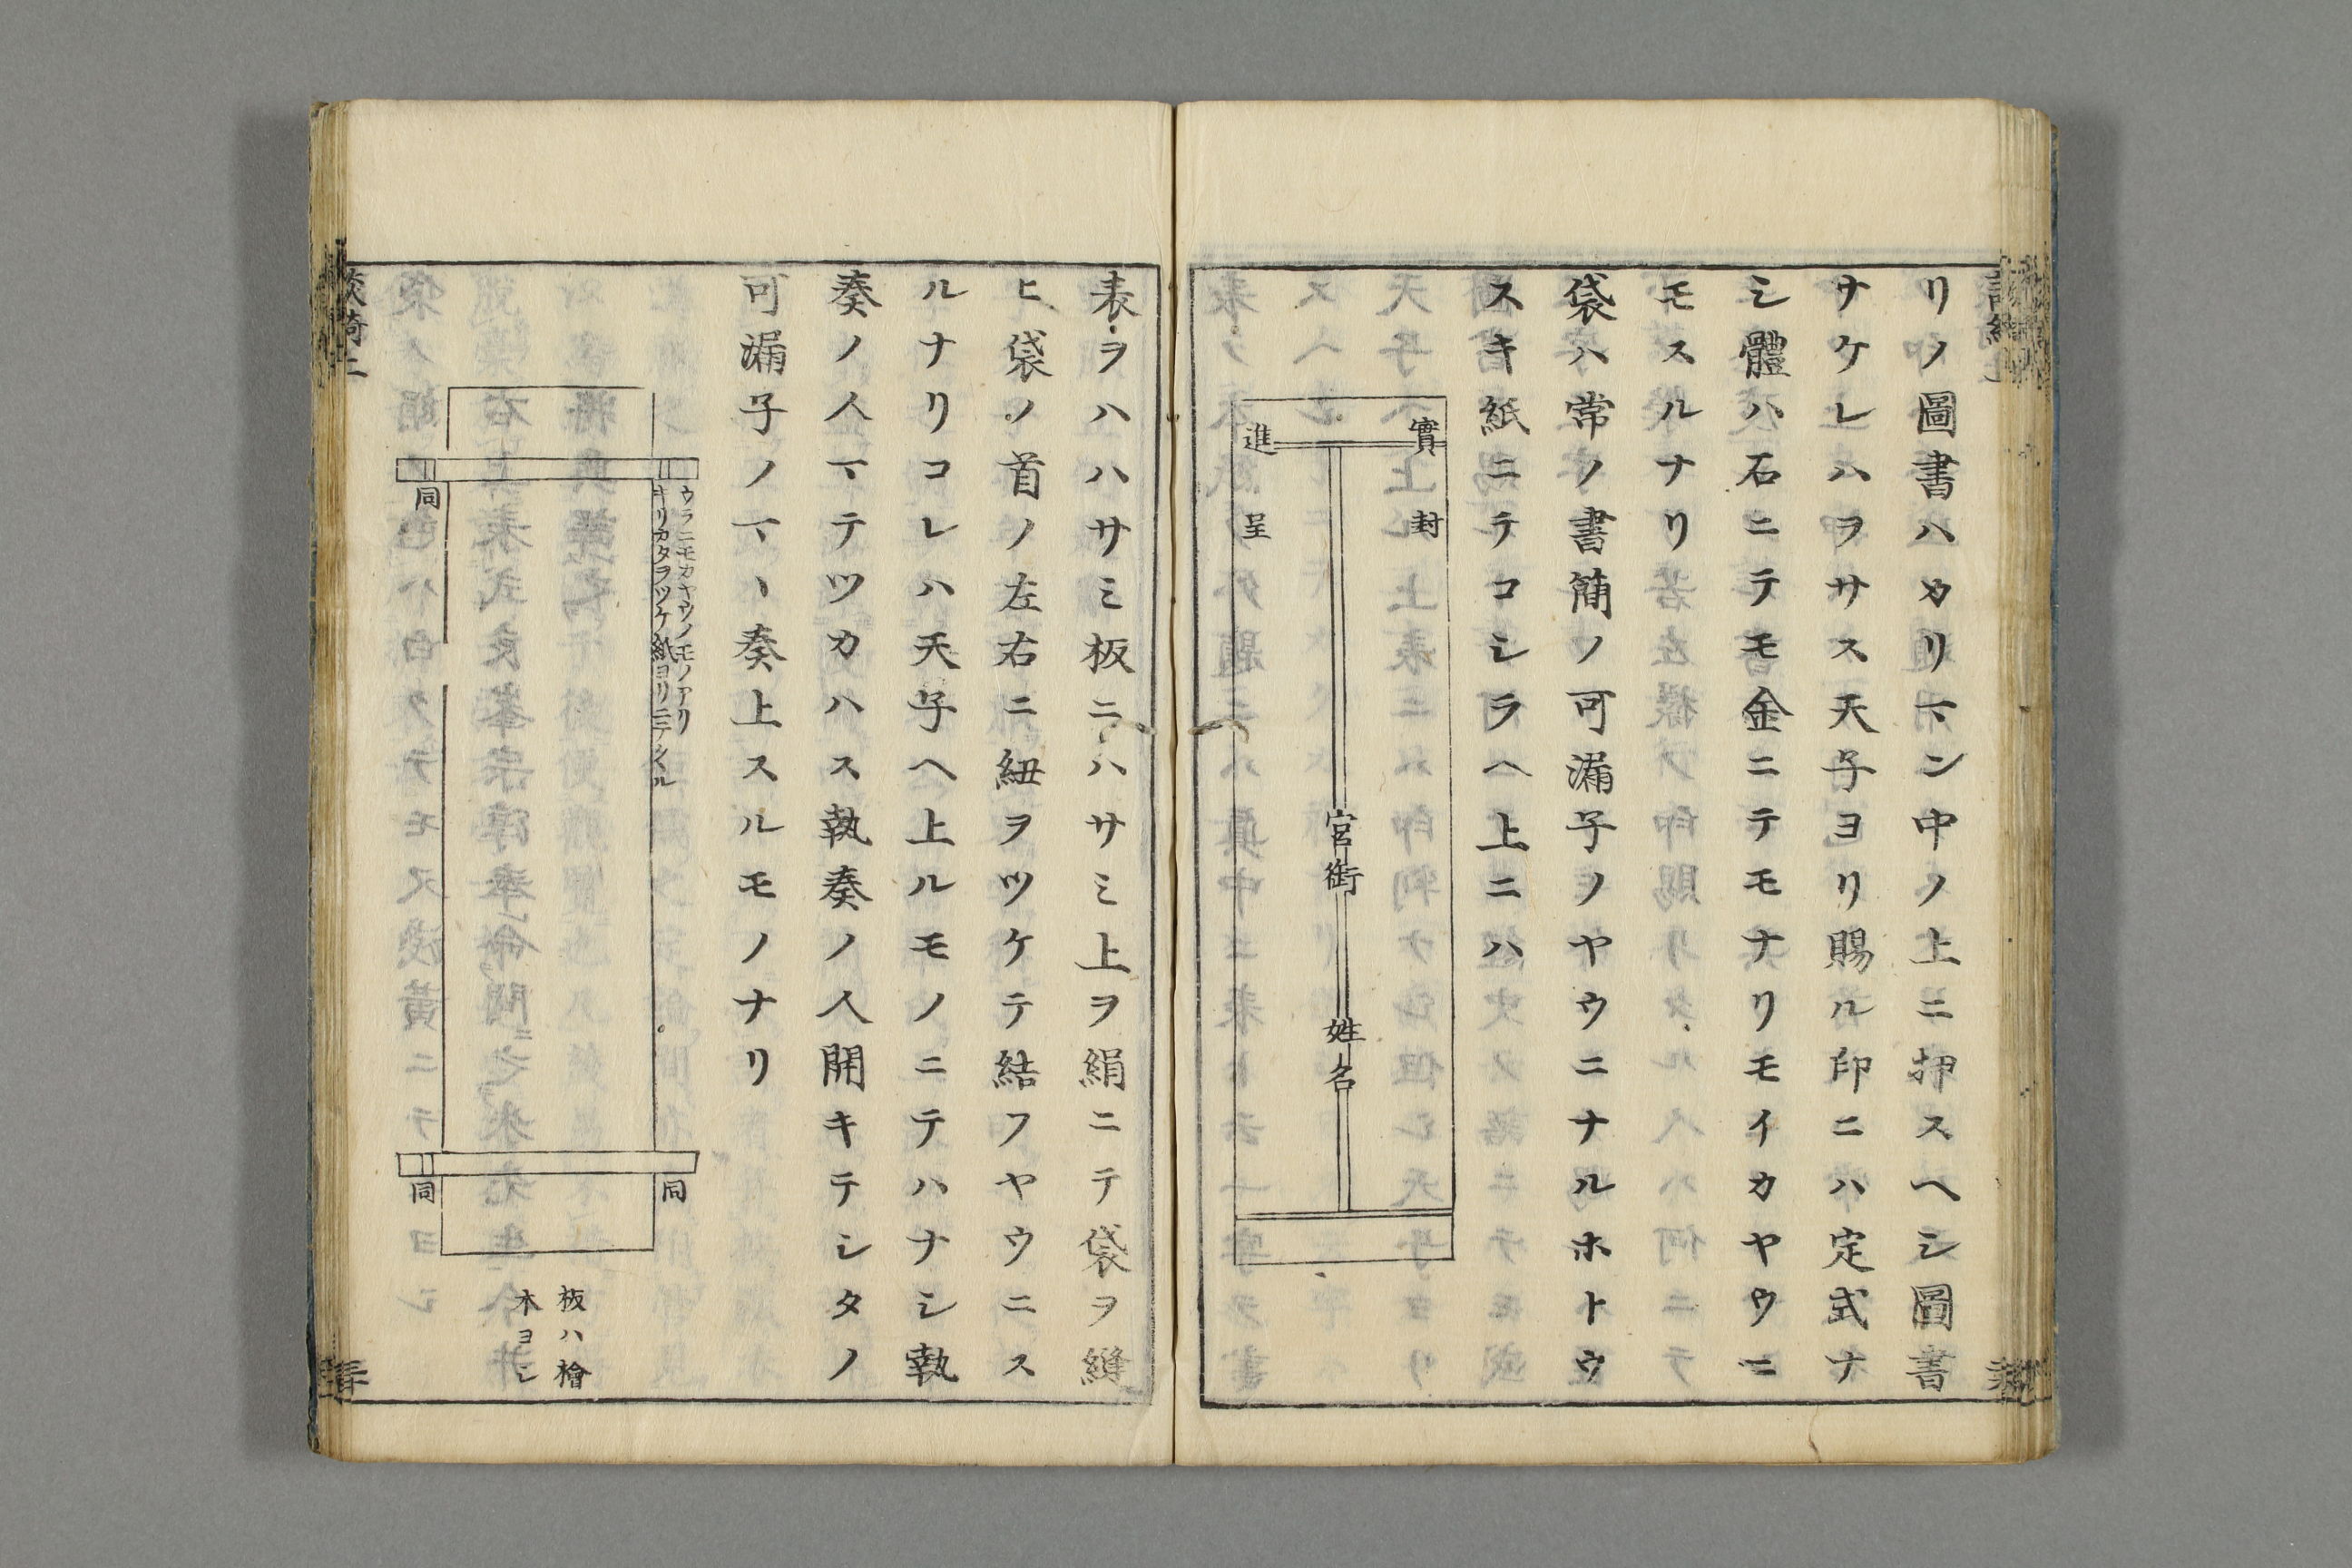 リノ圖書ハカリマン中ノ上ニ押スヘシ圖書
サケレハヲサス天子ヨリ賜ル印ニハ定式ナ
シ體ハ石ニテモ金ニテモナリモイカヤウニ
モスルナリ
袋ハ常ノ書簡ノ可漏子ノヤウニナルホトウ
スキ紙ニテコシラヘ上ニハ
實封
官銜 姓名
進呈
表ヲハハサミ板ニハサミ上ヲ絹ニテ袋ヲ縫
ヒ袋ノ首ノ左右ニ紐ヲツケテ結フヤウニス
ルナリコレハ天子ヘ上ルモノニテハナシ執
奏ノ人マテツカハス執奏ノ人開キテシタノ
可漏子ノマヽ奏上スルモノナリ
ウラニモカヤウノモノアリ
キリカタヲツケ紙ヨリニテクヽル
同
同
同
板ハ檜
木ヨシ